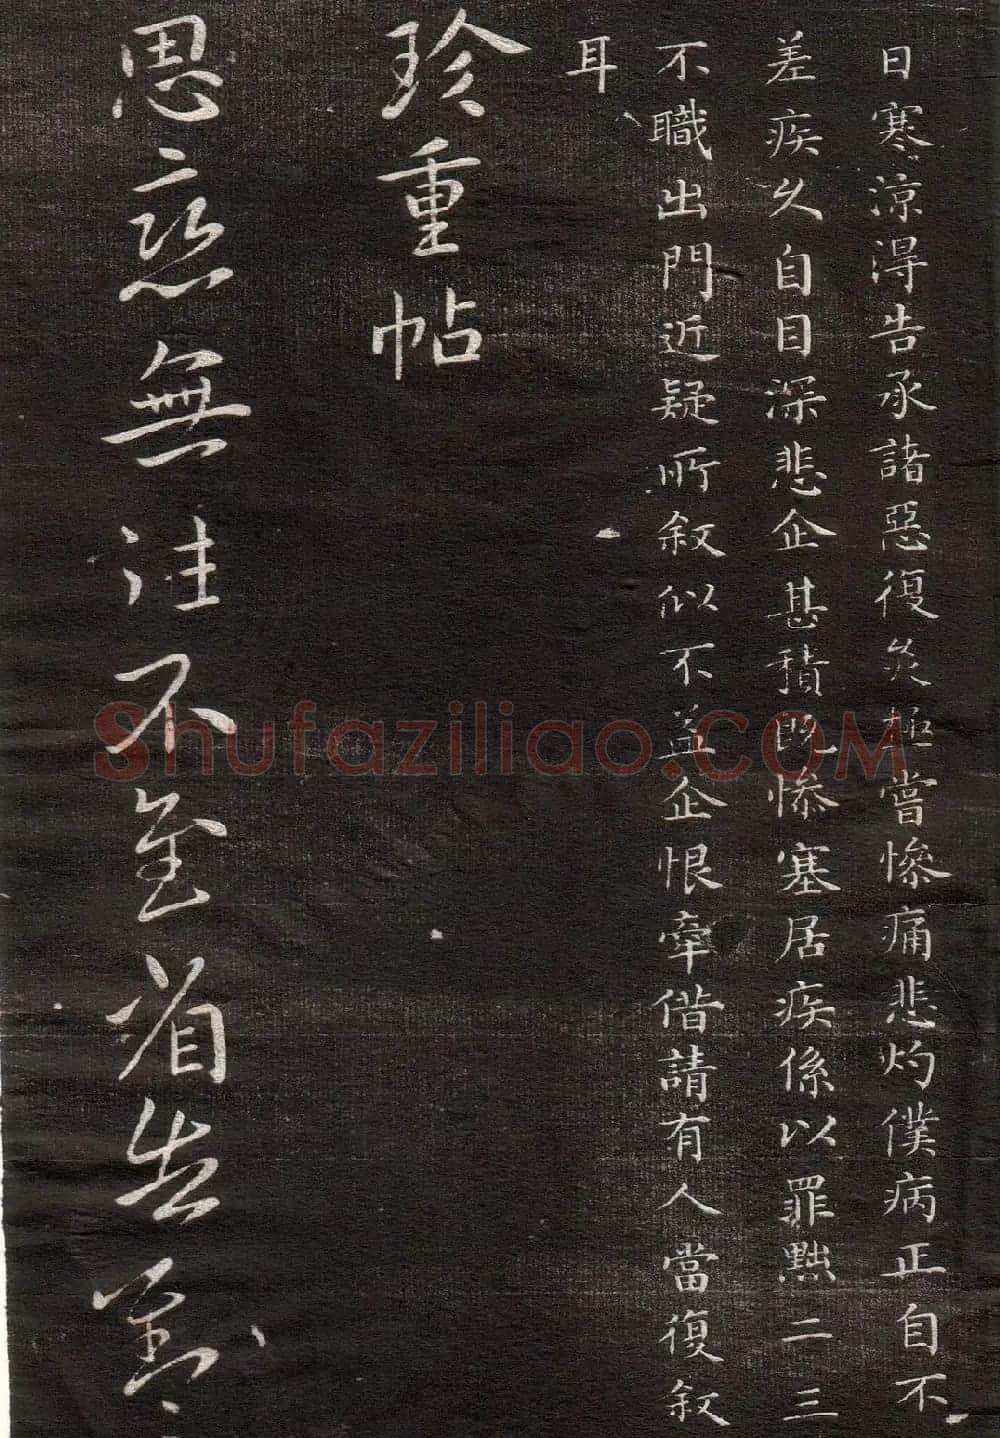 日寒涼得告承諸惡復灸極嘗慘痛悲灼僕病正自不
差疾久自目深悲企甚積既慘塞居疾係以罪黜二三
不職出門近疑所敘似不蓋企恨牽借請有人當復敘
耳
珍重帖
思戀無往不至省告對
Shufaziliao.COM